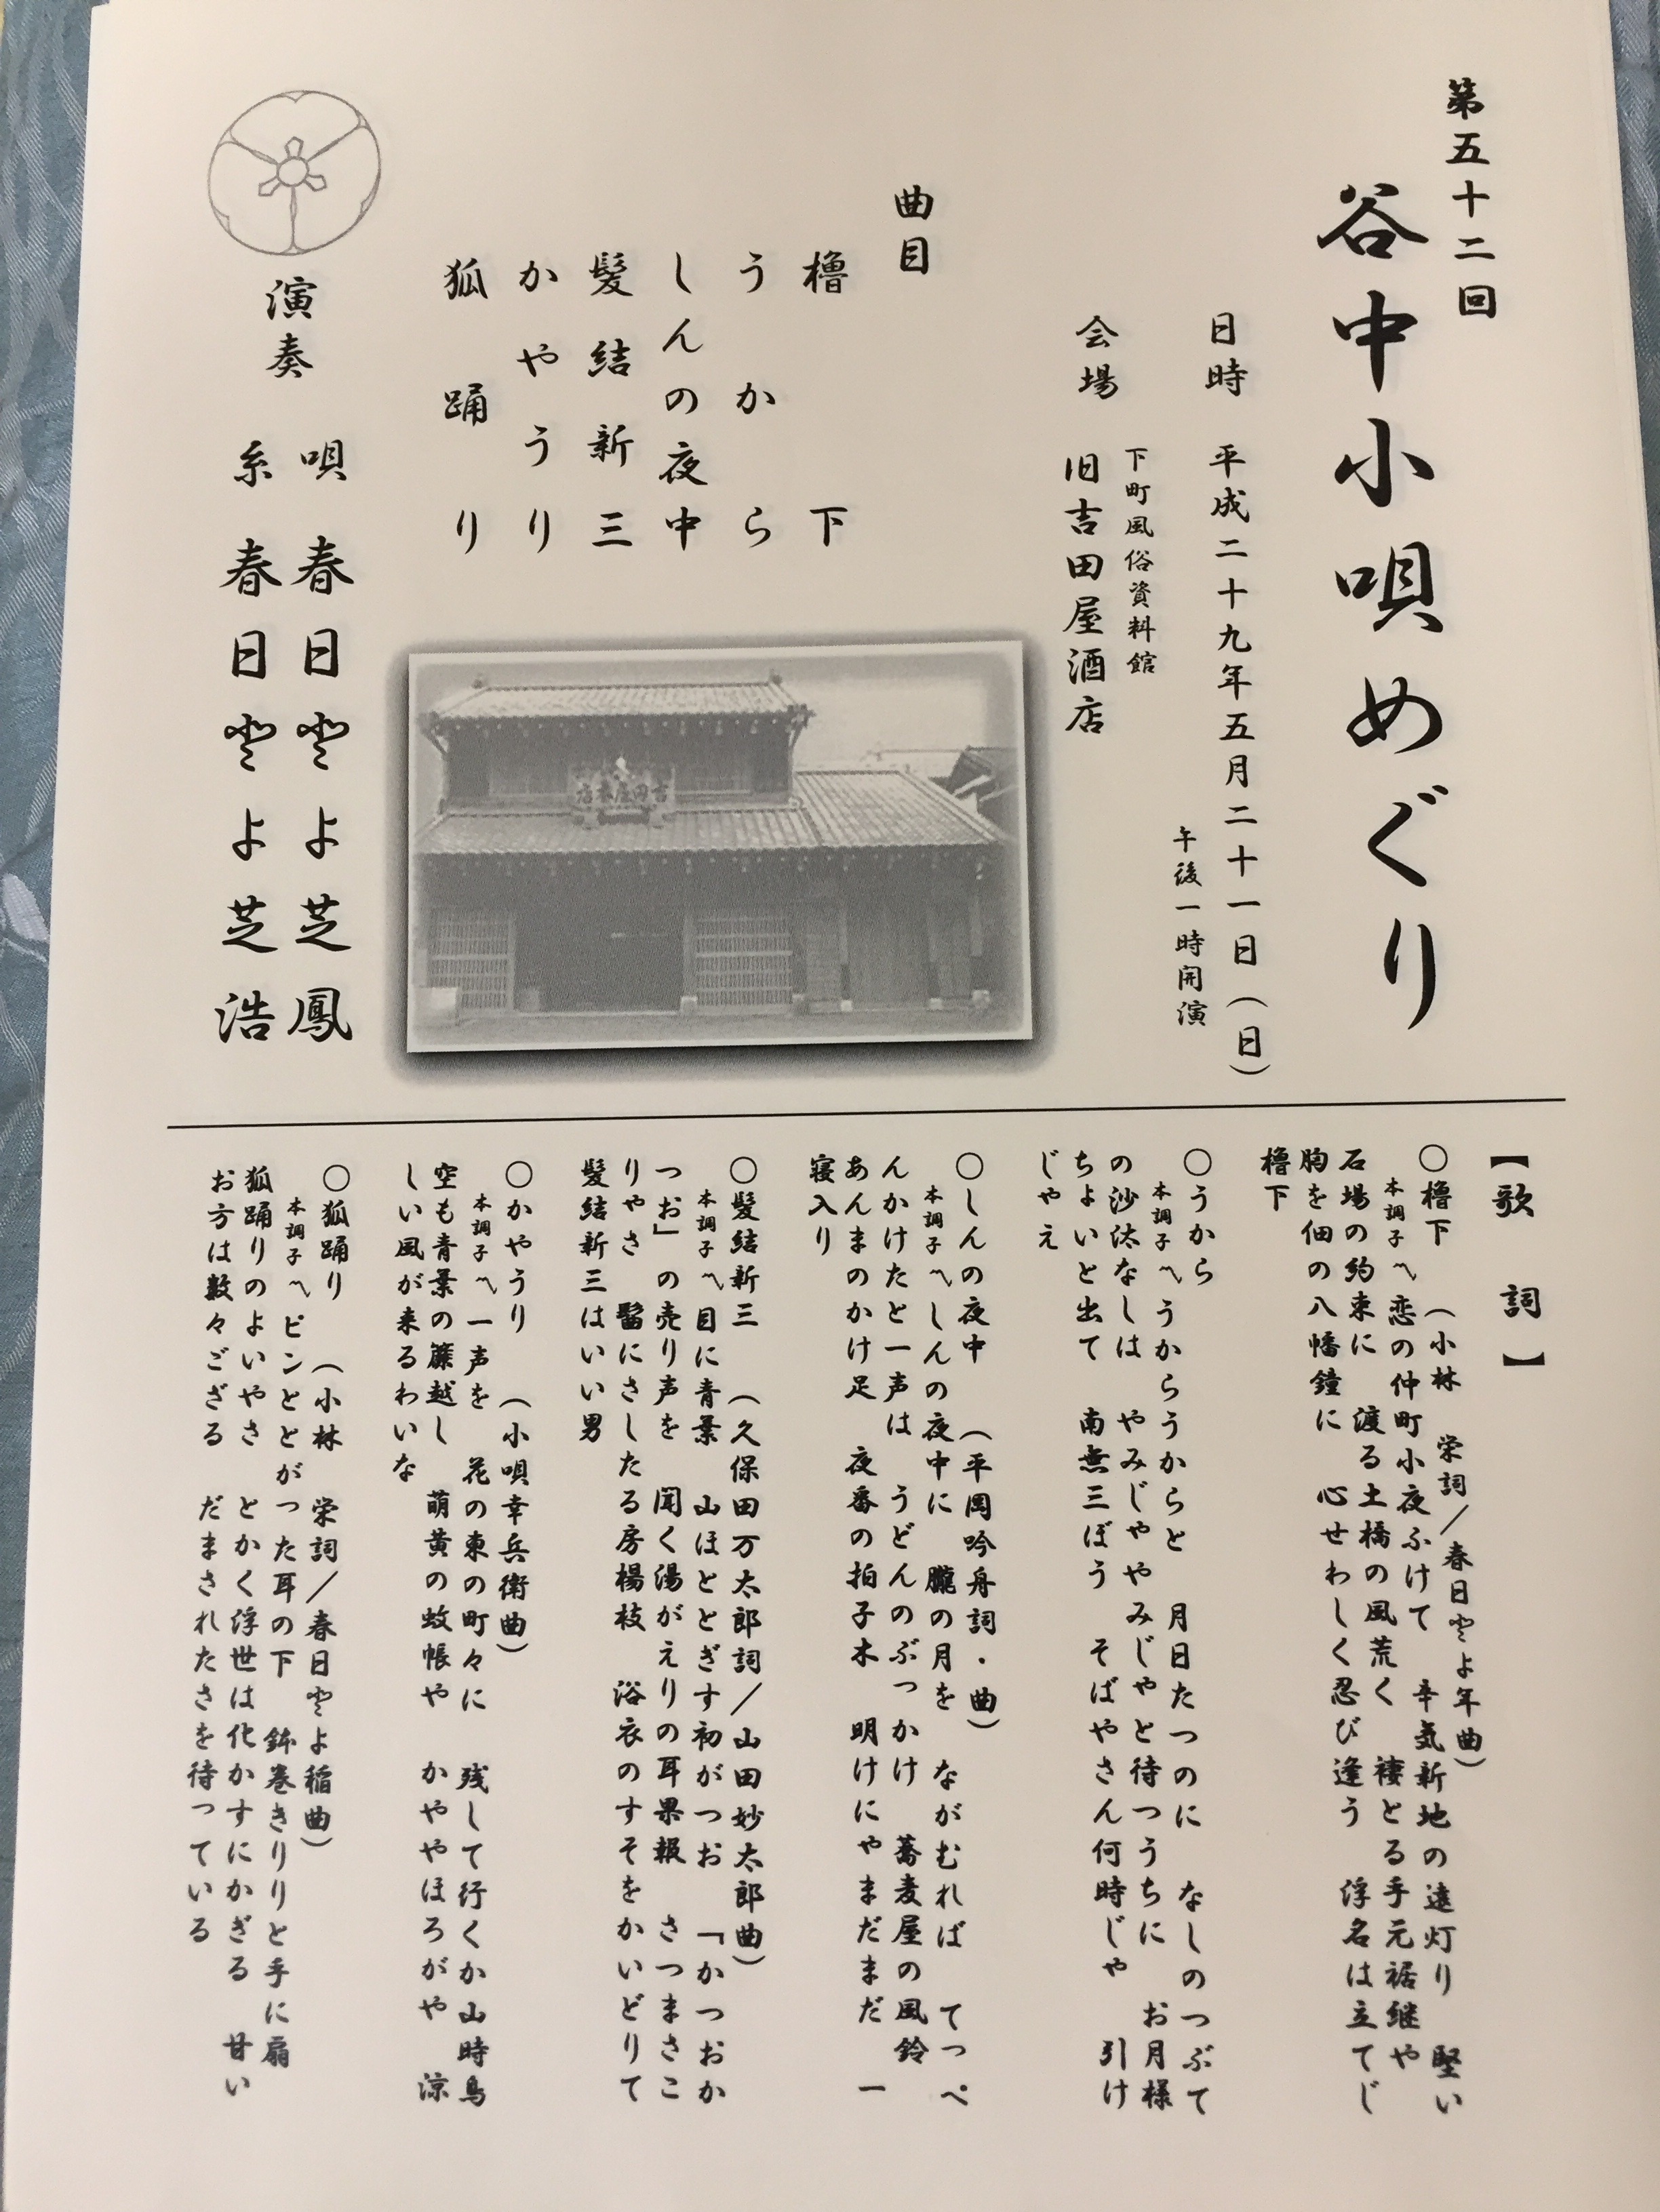 第五十二回
谷中小唄めぐり
日時　平成二十九年五月二十一日（日）
午後一時開演
会場　下町風俗資料館
旧吉田屋酒店
曲目
櫓下
うから
しんの夜中
髪結新三
かやうり
狐踊り
吉田屋本店
演奏　唄　春日とよ芝鳳
糸　春日とよ芝浩
【歌　詞】
〇櫓下　（小林　栄詞／春日とよ年曲）
本調子〽恋の仲町小夜ふけて　辛気新地の遠灯り　堅い
石場の約束に　渡る土橋の風荒く　褄とる手元裾継や
胸を佃の八幡鐘に　心せわしく忍び逢う　浮名は立てじ
櫓下
〇うから
本調子〽うからうからと　月日たつのに　なしのつぶて
の沙汰なしは　やみじややみじやと待つうちに　お月様
ちよいと出て　南無三ぼう　そばやさん何時じや　引け
じやえ
〇しんの夜中　（平岡吟舟詞・曲）
本調子〽しんの夜中に　朧の月を　ながむれば　てつぺ
んかけたと一声は　うどんのぶっかけ　蕎麦屋の風鈴
あんまのかけ足　夜番の拍子木　明けにやまだまだ　一
寝入り
〇髪結新三　（久保田万太郎詞／山田妙太郎曲）
本調子〽目に青葉　山ほととぎす初がつお　「かつおか
つお」の売り声を　聞く湯がえりの耳果報　さつまさこ
りやさ　髷にさしたる房楊枝　浴衣のすそをかいどりて
髪結新三はいい男
〇かやうり　（小唄幸兵衛曲）
本調子〽一声を　花の東の町々に　残して行くか山時鳥
空も青葉の簾越し　萌黄の蚊帳や　かややほろがや　涼
しい風が来るわいな
〇狐踊り　（小林　栄詞／春日とよ稲曲）
本調子〽ピンととがった耳の下　鉢巻きりりと手に扇
狐踊りのよいやさ　とかく浮世は化かすにかぎる　甘い
お方は数々ござる　だまされたさを待っている